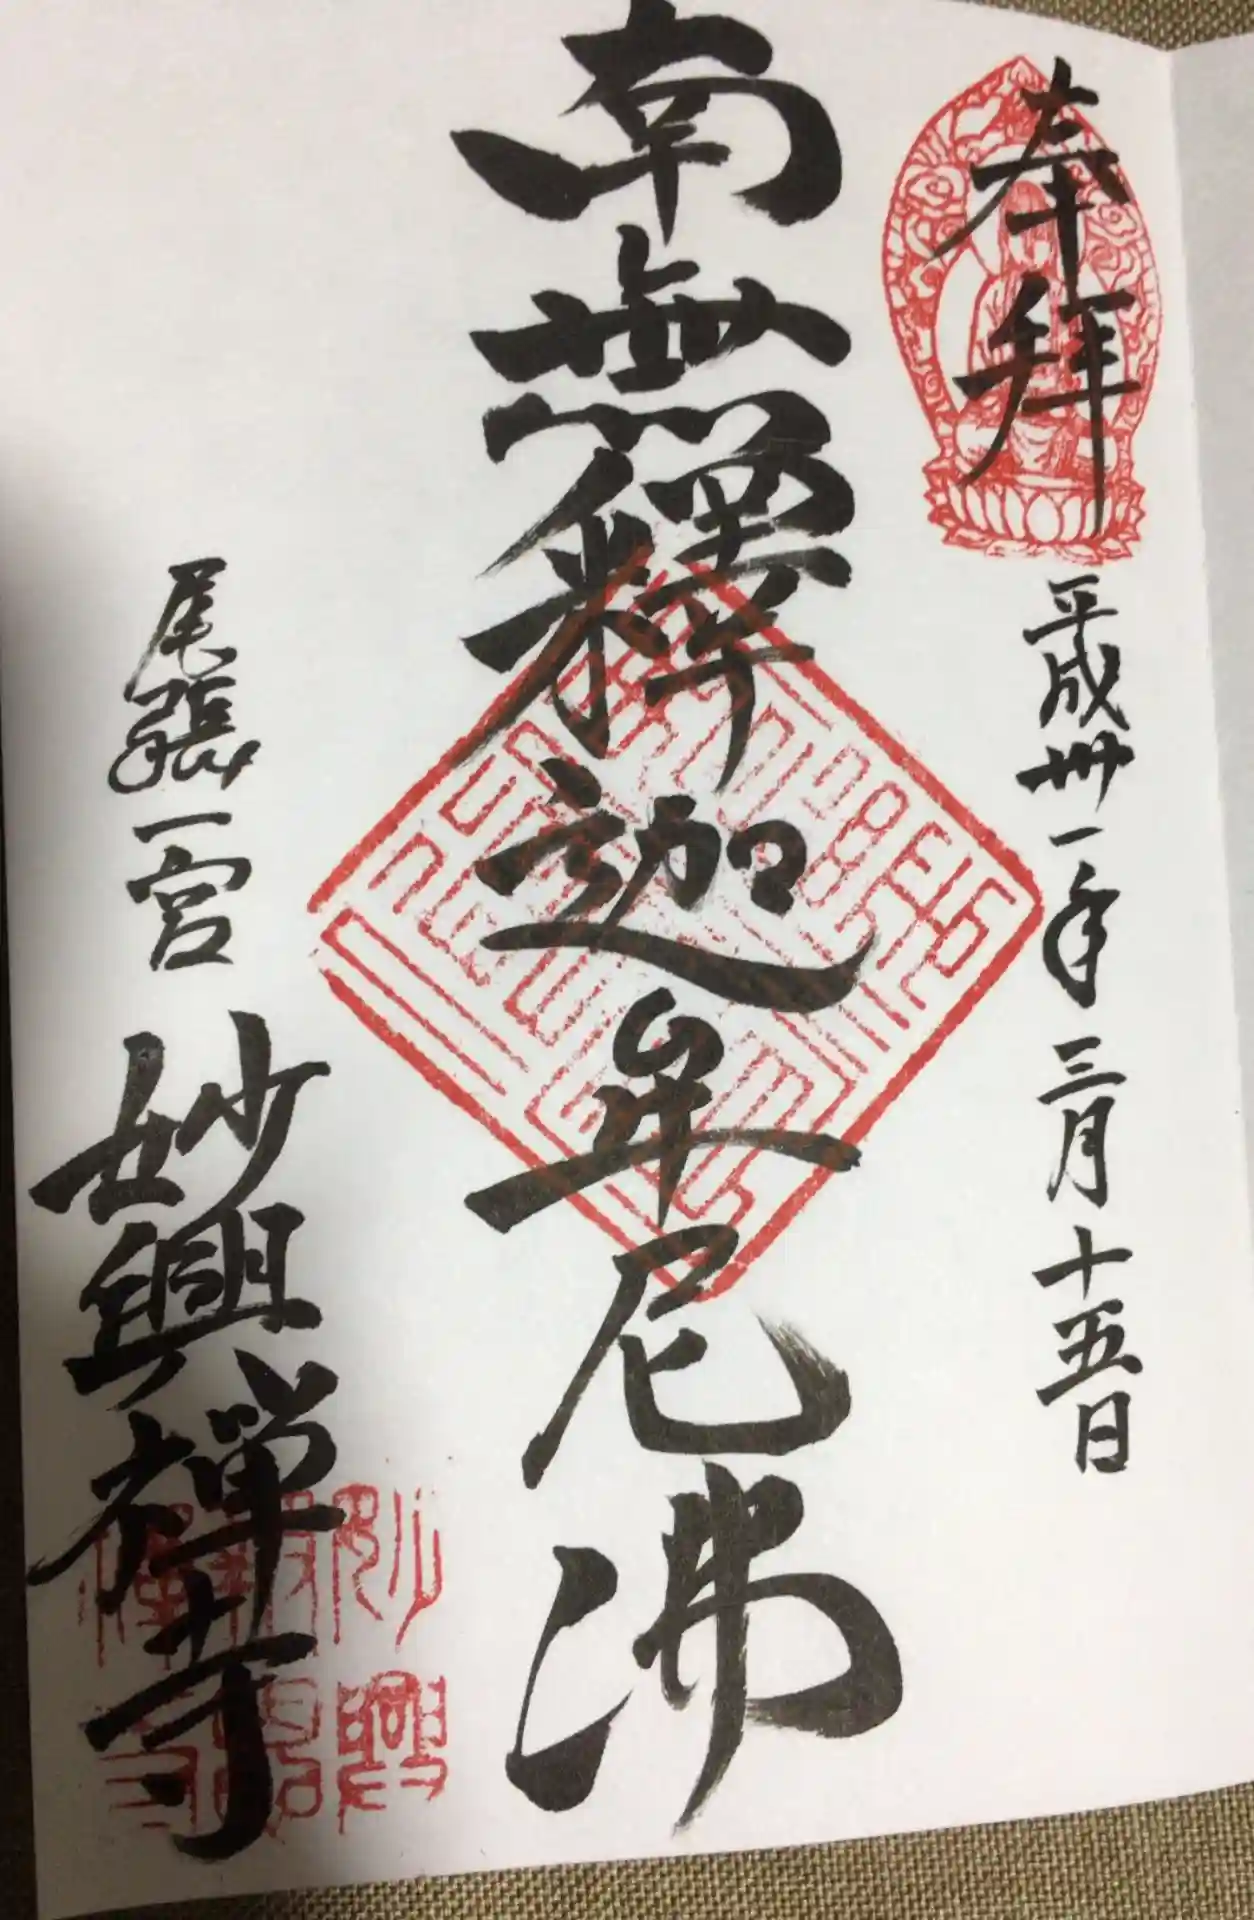 奉拜
平成卅一年三月十五日
南無釋迦牟尼佛
尾張一宮
妙興禅寺